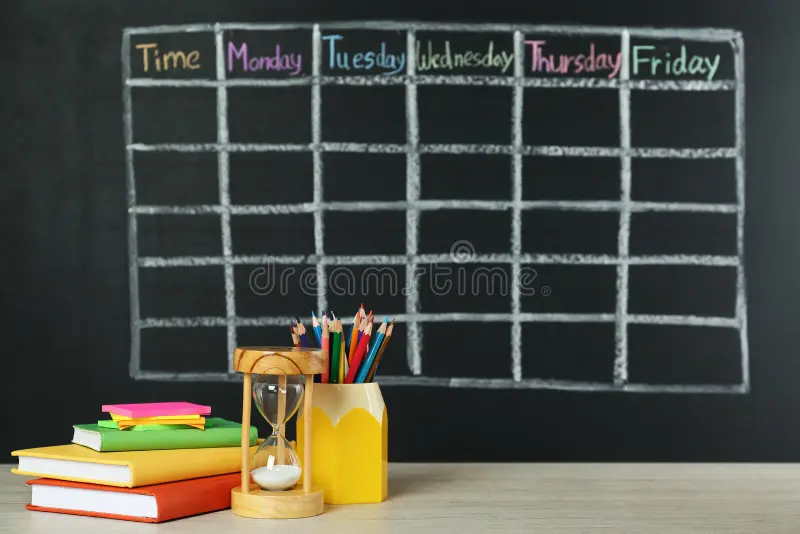 Time Monday Tuesday Wednesday Thursday Friday
dreamstime